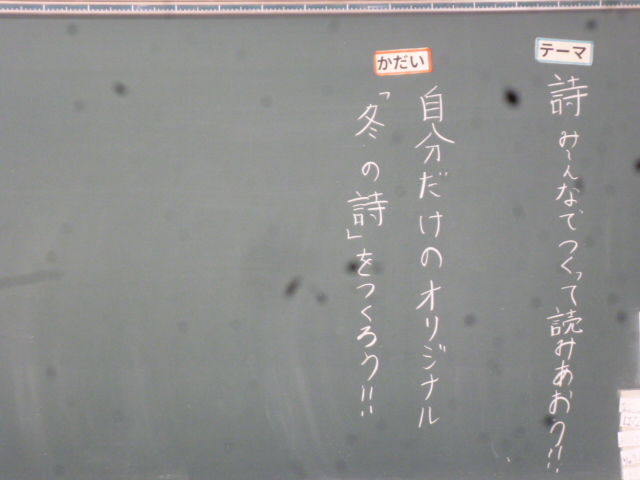 テーマ
詩 み〜んなでつくって読みあおう!!
かだい
自分だけのオリジナル
「冬の詩」をつくろう!!